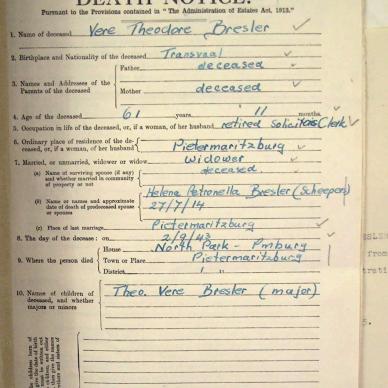 DEATH NOTICE.
Pursuant to the Provisions contained in "The Administration of Estates Act, 1913."
1. Name of deceased Vere Theodore Bresler
2. Birthplace and Nationality of the deceased Transvaal
3. Names and Addresses of the Parents of the deceased
Father deceased
Mother deceased
4. Age of the deceased 61 years 11 months
5. Occupation in life of the deceased, or, if a woman, of her husband retired solicitors Clerk
6. Ordinary place of residence of the deceased, or, if a woman, of her husband Pietermaritzburg
7. Married, or unmarried, widower or widow widower
(a) Name of surviving spouse (if any) and whether married in community of property or not deceased
(b) Name or names and approximate date of death of predeceased spouse or spouses Helena Petronella Bresler (Scheepers)
27/7/14
(c) Place of last marriage Pietermaritzburg
8. The day of decease: on 2/9/43
9. Where the person died
House North Park - Pmburg
Town or Place Pietermaritzburg
District
10. Names of children of deceased, and whether majors or minors
Theo. Vere Bresler (major)